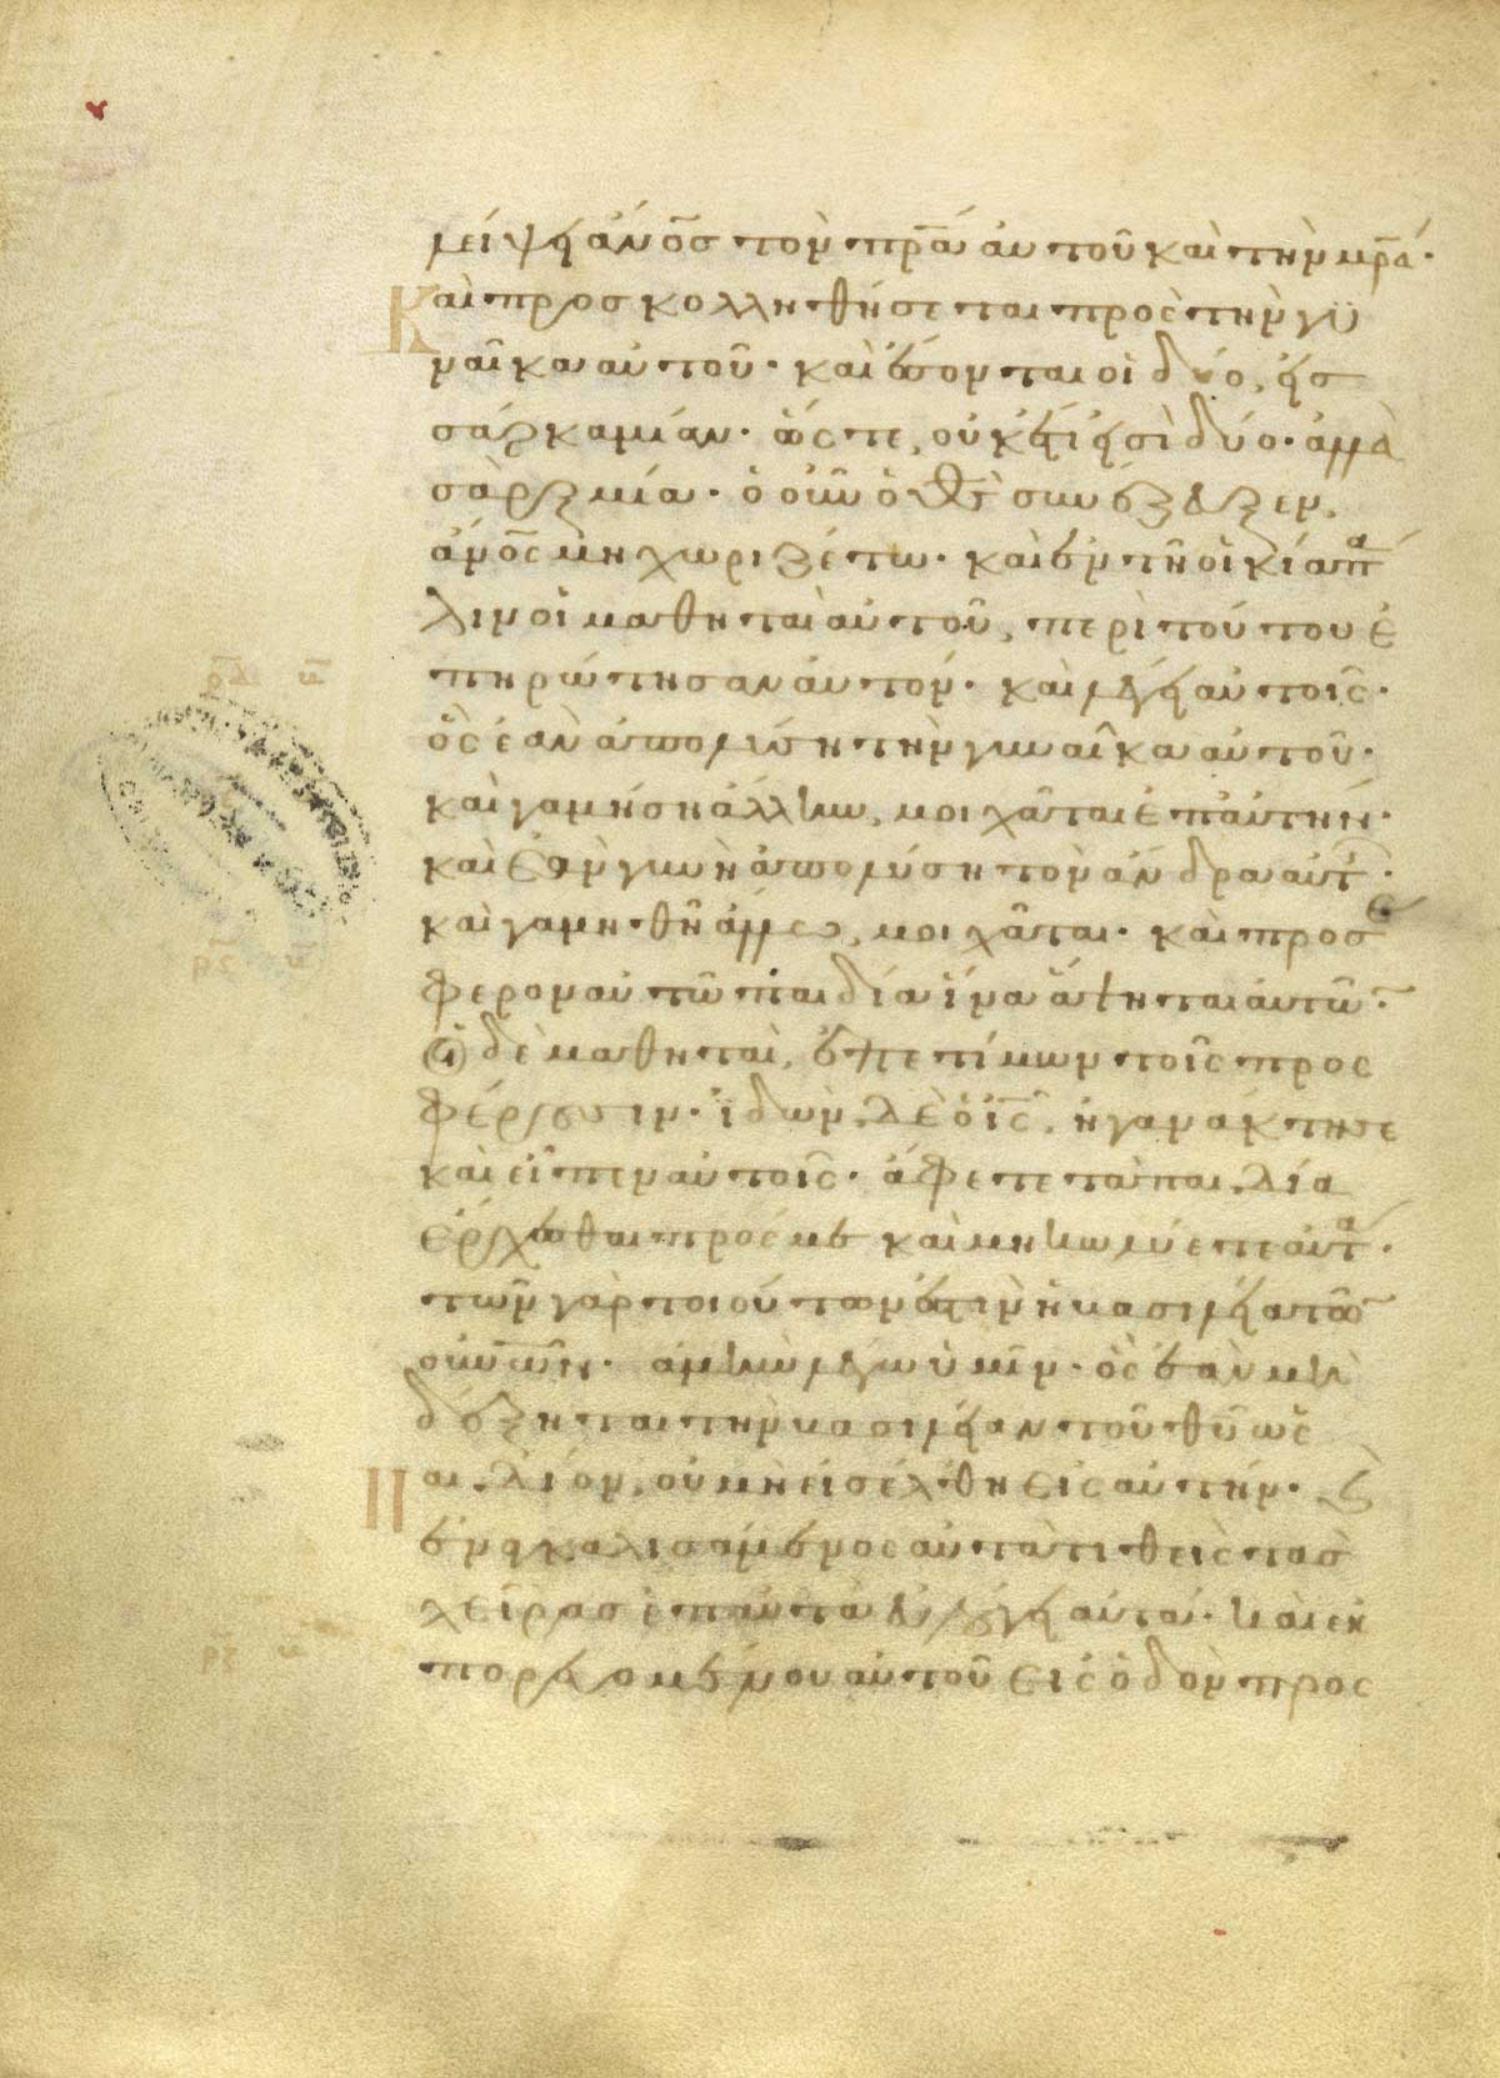 λείψει ἄνο̅σ τὸν πρ̅α αὐτοῦ καὶ τὴν μρ̅α·
Καὶ προσκολληθήσεται πρὸς τὴν γϋ
ναῖκα αὐτοῦ· καὶ ἔσονται οἱ δύο, εἰσ
σάρκα μίαν· ὥστε, οὐκέτι εἰσὶ δύο· ἀλλὰ
σὰρξ μία· ὃ οὖν ὁ θ̅ς̅ συνέζευξεν,
ἄνο̅ς μὴ χωριζέτω· καὶ ἐν τῆ οἰκία πᾱ
λιν οἱ μαθηταὶ αὐτοῦ, περὶ τούτου ἐ
πηρώτησαν αὐτόν· καὶ λέγει αὐτοῖς·
ὃς ἐὰν ἀπολύση τὴν γυναῖκα αὐτοῦ·
καὶ γαμήση ἄλλην, μοιχᾶται ἐπ αὐτήν·
καὶ ἐὰν γυνὴ ἀπολύση τὸν ἄνδρα αὐτ̅·
καὶ γαμηθῆ ἄλλω, μοιχᾶται· καὶ προσέ
φερον αὐτῶ παιδία ἵνα ἅψηται αὐτῶ̅·
Οἱ δὲ μαθηταὶ, ἐπετίμων τοῖς προς
φέρουσιν· ἰδὼν δὲ ὁ ι̅ς̅, ἠγανάκτησε
καὶ εἶπεν αὐτοῖς· ἄφετε τὰ παιδία
ἔρχεσθαι πρός με καὶ μὴ κωλύετε αὐτᾱ·
τῶν γὰρ τοιούτων ἐστὶν ἡ βασιλεία τῶ̅
οὐν̅ῶν· ἀμὴν λέγω ὑμῖν· ὃς ἐὰν μὴ
δέξηται τὴν βασιλείαν τοῦ θ̅υ̅ ὡς
Παιδίον, οὐ μὴ εἰσέλθη εἰς αὐτήν· ϗ
ἐναγκαλισάμενος αὐτὰ τιθεὶς τὰσ
χεῖρασ ἐπ αὐτὰ εὐλόγει αὐτά· καὶ ἐκ
πορευομένου αὐτοῦ εἰς ὁδὸν προς